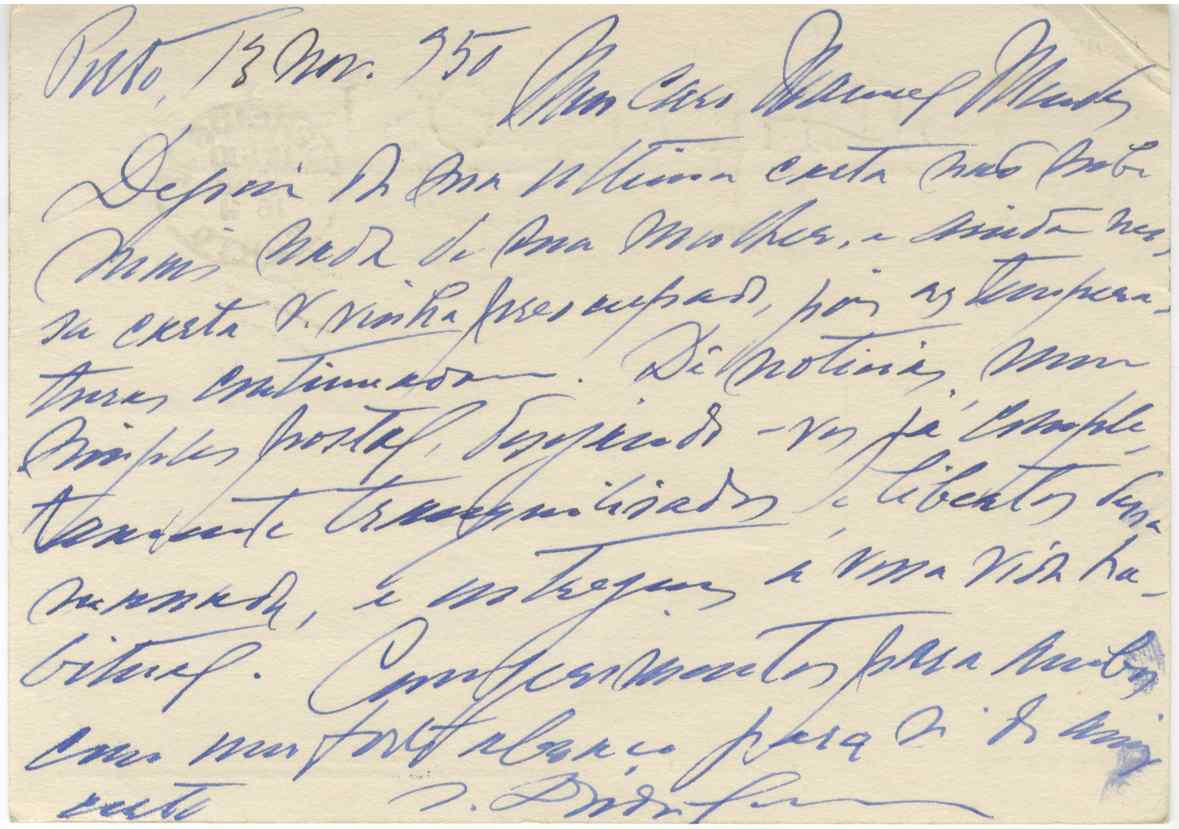 Porto, 13 Nov. 950
Meu caro Manuel Mendes
Depois da sua ultima carta não soube
mais nada de sua mulher, e ainda nes-
sa carta V. vinha preocupado, pois as tempera-
turas continuadas. Dê noticias, num
simples postal, desejando-vos já comple-
tamente tranquilisados e libertos dessa
massada, e entregues à vossa vida ha-
bitual. Cumprimentos para ambos
com um forte abraço para si do amigo